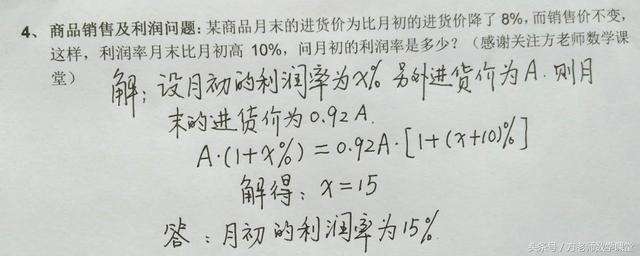 4、商品销售及利润问题：某商品月末的进货价为比月初的进货价降了 8%，而销售价不变，
这样，利润率月末比月初高 10%，问月初的利润率是多少？（感谢关注方老师数学课
堂）
解：设月初的利润率为x% 另外进货价为A. 则月
末的进货价为0.92A.
A·(1+x%)=0.92A·[1+(x+10)%]
解得：x=15
答：月初的利润率为15%.
头条号 / 方老师数学课堂